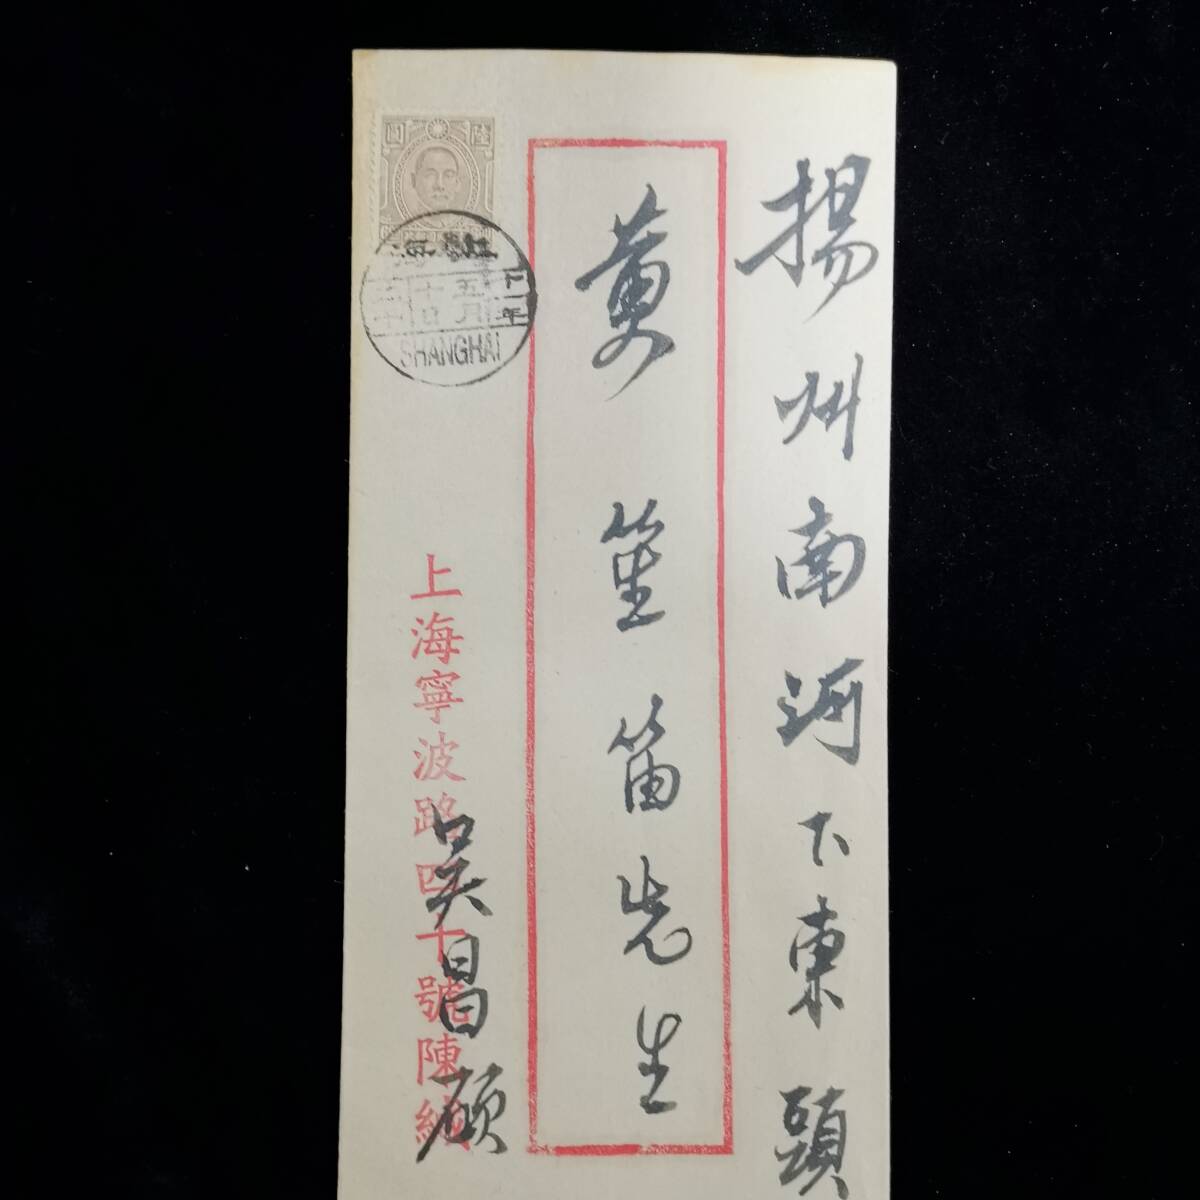 揚州南河下東頭
黃笙笛先生
上海寧波路四十號陳緘
吳昌碩
圓 陸
海
下 五 十
一年 月 日
SHANGHAI